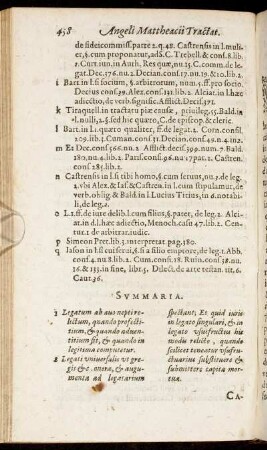 458 Angeli Mattheacii Tractat.
de fideicommiss. parte 2. q. 48. Castrensis in l. mulier, §. cum proponatur, ad S. C. Trebell. & cons. 18. lib. 2. Curt. iun. in Auth. Res quæ, nu. 25. C. comm. de legat. Dec. 176. nu. 2. Decian. cons. 17. nu. 19. & 20. lib. 2.
i Bart. in l. si socium, §. arbitrorum, num. 5. ff. pro socio. Decius cons. 39. Alex. cons. 210. lib. 2. Alciat. in l. hæc adiectio, de verb. signific. Afflict. Decis. 371.
k Tiraquell. in tractatu piæ causæ, priuileg. 55. Bald. in
l. nulli, 2. §. sed hic quarto, C. de episcop. & cleric.
l Bart. in l. 1. quarto qualitet, ff. de legat. 2. Corn. consil. 209. lib. 3. Cuman. cons. 17. Decian. cons. 49. n. 4. nu. 12.
m Et Dec. cons. 566. nu. 2. Afflict. decis. 399. num. 7. Bald. 280. nu. 4. lib. 2. Paris. cons. 96. nu. 17. pat. 2. Castren. cons. 285. lib. 2.
n Castrensis in l. si tibi homo, §. cum seruus, nu. 7. de leg. 1. vbi Alex. & Ias. & Castren. in l. cum stipulamur, de verb. oblig. & Bald. in l. Lucius Titius, in 6. notabili, de leg. 2.
o L. 2. ff. de iure delib. l. cum filius, §. pater, de leg. 2. Alciat. in d. l. hæc adiectio, Menoch. casu 47. lib. 2. Centur. 1. de arbitrar. iudic.
p Simeon Pret. lib. 3. interpretat. pag. 180.
q Iason in l. si cui seruij, §. si a filio emptore, de leg. 1. Abb. cons. 4. nu. 8. lib. 2. Cum. consil. 18. Ruin. cons. 18. nu. 16. & 153. in fine, lib. 5. Dilect. de arte testan. tit. 6. Caut. 36.
SVMMARIA.
1 Legatum ab auo nepti relictum, quando profectitium, & quando aduentitium sit, & quando in legitima computetur.
2 Legati vniuersalis vt gregis & c. onera, & augumenta ad legatarium
spectant; Et quid iuris in legato singulari, & in legato vsusfructus his modis relicto, quando scilicet teneatur vsufructuarius substituere & submittere capita mortua.
CA-